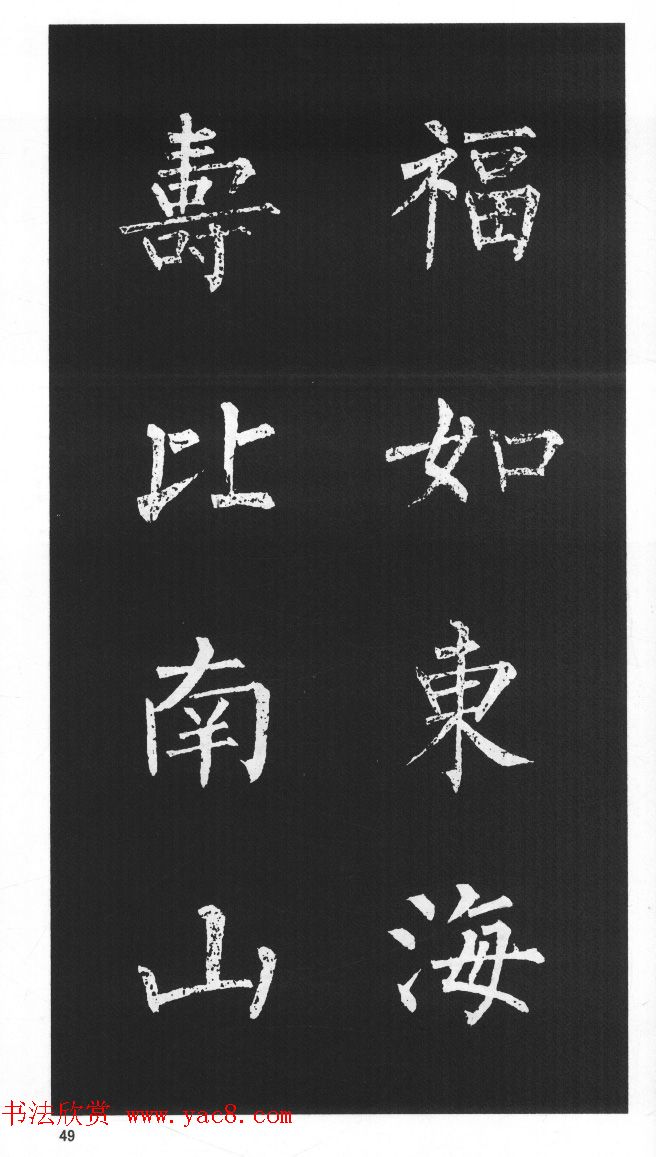 福如東海
壽比南山
书法欣赏 www.yac8.com
49